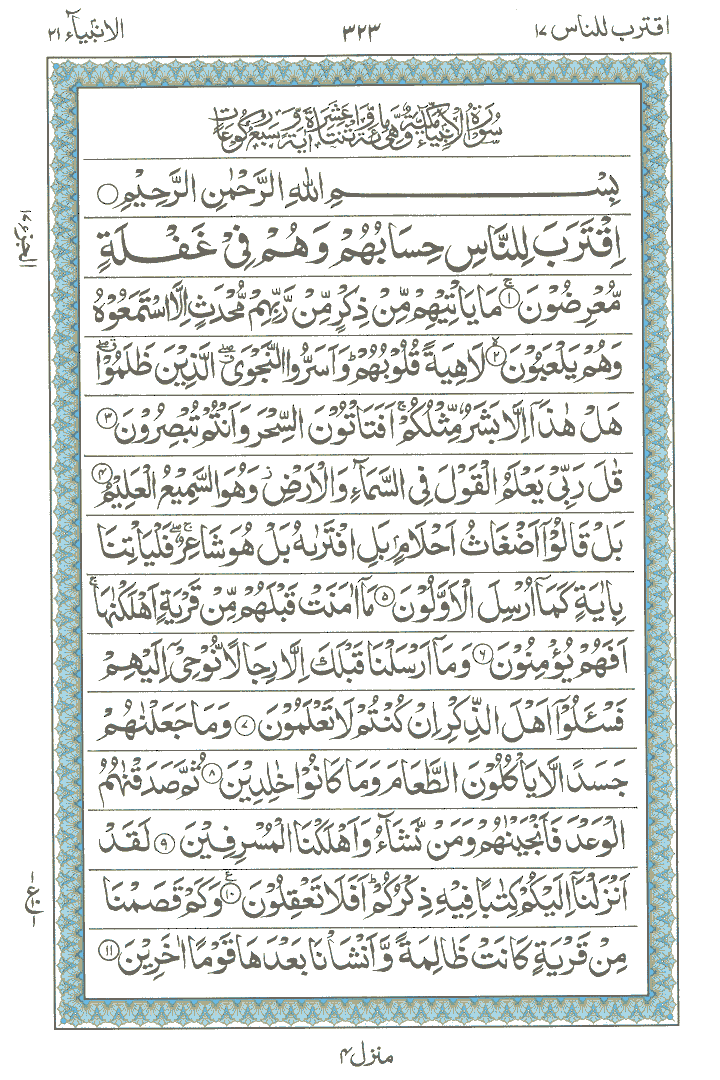 اقترب للناس ١٧
٣٢٣
الانبیآء ٢١
سُوْرَةُ الْاَنْۢبِيَآءِ مَكِّيَّةٌ وَّهِىَ مِائَةٌ وَّاثْنَتَا عَشْرَةَ اٰيَةً وَّسَبْعُ رُكُوْعَاتٍ
بِسْمِ اللهِ الرَّحْمٰنِ الرَّحِيْمِ ○
الجزء ١٧
اِقْتَرَبَ لِلنَّاسِ حِسَابُهُمْ وَهُمْ فِىْ غَفْلَةٍ
مُّعْرِضُوْنَ ۚ﴿١﴾ مَا يَاْتِيْهِمْ مِّنْ ذِكْرٍ مِّنْ رَّبِّهِمْ مُّحْدَثٍ اِلَّا اسْتَمَعُوْهُ
وَهُمْ يَلْعَبُوْنَ ۙ﴿٢﴾ لَاهِيَةً قُلُوْبُهُمْ ؕ وَاَسَرُّوا النَّجْوَى ۖ الَّذِيْنَ ظَلَمُوْا ۖ
هَلْ هٰذَاۤ اِلَّا بَشَرٌ مِّثْلُكُمْ ۚ اَفَتَاْتُوْنَ السِّحْرَ وَاَنْتُمْ تُبْصِرُوْنَ ﴿٣﴾
قٰلَ رَبِّىْ يَعْلَمُ الْقَوْلَ فِى السَّمَآءِ وَالْاَرْضِ ز وَهُوَ السَّمِيْعُ الْعَلِيْمُ ﴿٤﴾
بَلْ قَالُوْۤا اَضْغَاثُ اَحْلَامٍۭ بَلِ افْتَرٰىهُ بَلْ هُوَ شَاعِرٌ ۖۚ فَلْيَاْتِنَا
بِاٰيَةٍ كَمَاۤ اُرْسِلَ الْاَوَّلُوْنَ ﴿٥﴾ مَاۤ اٰمَنَتْ قَبْلَهُمْ مِّنْ قَرْيَةٍ اَهْلَكْنٰهَا ۚ
اَفَهُمْ يُؤْمِنُوْنَ ﴿٦﴾ وَمَاۤ اَرْسَلْنَا قَبْلَكَ اِلَّا رِجَالًا نُّوْحِىْۤ اِلَيْهِمْ
فَسْـَٔلُوْۤا اَهْلَ الذِّكْرِ اِنْ كُنْتُمْ لَا تَعْلَمُوْنَ ﴿٧﴾ وَمَا جَعَلْنٰهُمْ
جَسَدًا لَّا يَاْكُلُوْنَ الطَّعَامَ وَمَا كَانُوْا خٰلِدِيْنَ ﴿٨﴾ ثُمَّ صَدَقْنٰهُمُ
الْوَعْدَ فَاَنْجَيْنٰهُمْ وَمَنْ نَّشَآءُ وَاَهْلَكْنَا الْمُسْرِفِيْنَ ﴿٩﴾ لَقَدْ
اَنْزَلْنَاۤ اِلَيْكُمْ كِتٰبًا فِيْهِ ذِكْرُكُمْ ؕ اَفَلَا تَعْقِلُوْنَ ﴿١٠﴾ ع وَكَمْ قَصَمْنَا
ع
مِنْ قَرْيَةٍ كَانَتْ ظَالِمَةً وَّاَنْشَاْنَا بَعْدَهَا قَوْمًا اٰخَرِيْنَ ﴿١١﴾
منزل ٤